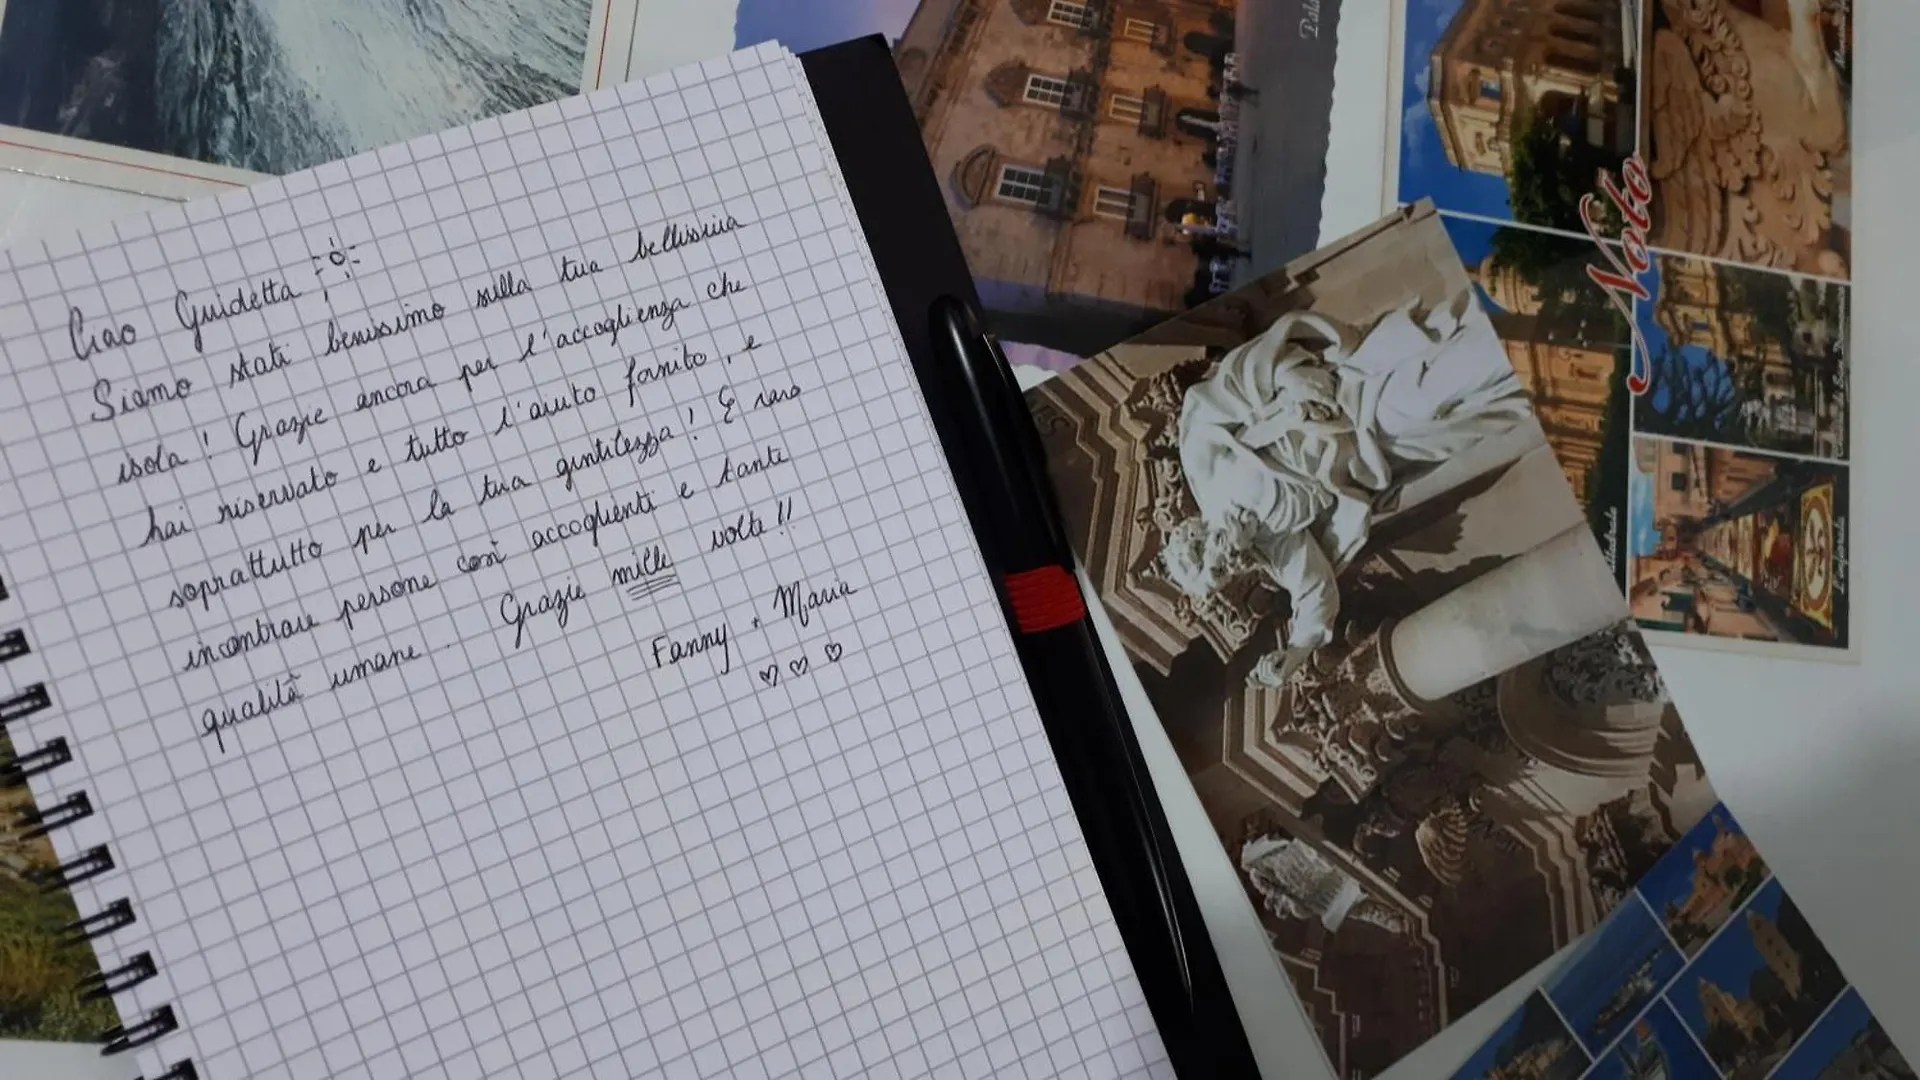 Ciao Guidetta,
Siamo stati benissimo sulla tua bellissima
isola ! Grazie ancora per l'accoglienza che
hai riservato e tutto l'aiuto fornito, e
soprattutto per la tua gentilezza ! È raro
incontrare persone così accoglienti e tante
qualità umane. Grazie mille volte !!
Fanny + Maria
Noto